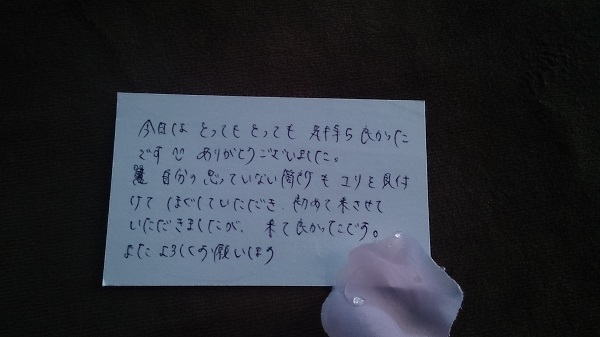 今日は とっても とっても 気持ち良かった
です ありがとうございました。
自分の思っていない箇所も コリを見付
けて ほぐしていただき、初めて来させて
いただきましたが、来て良かったです。
また よろしくお願いします